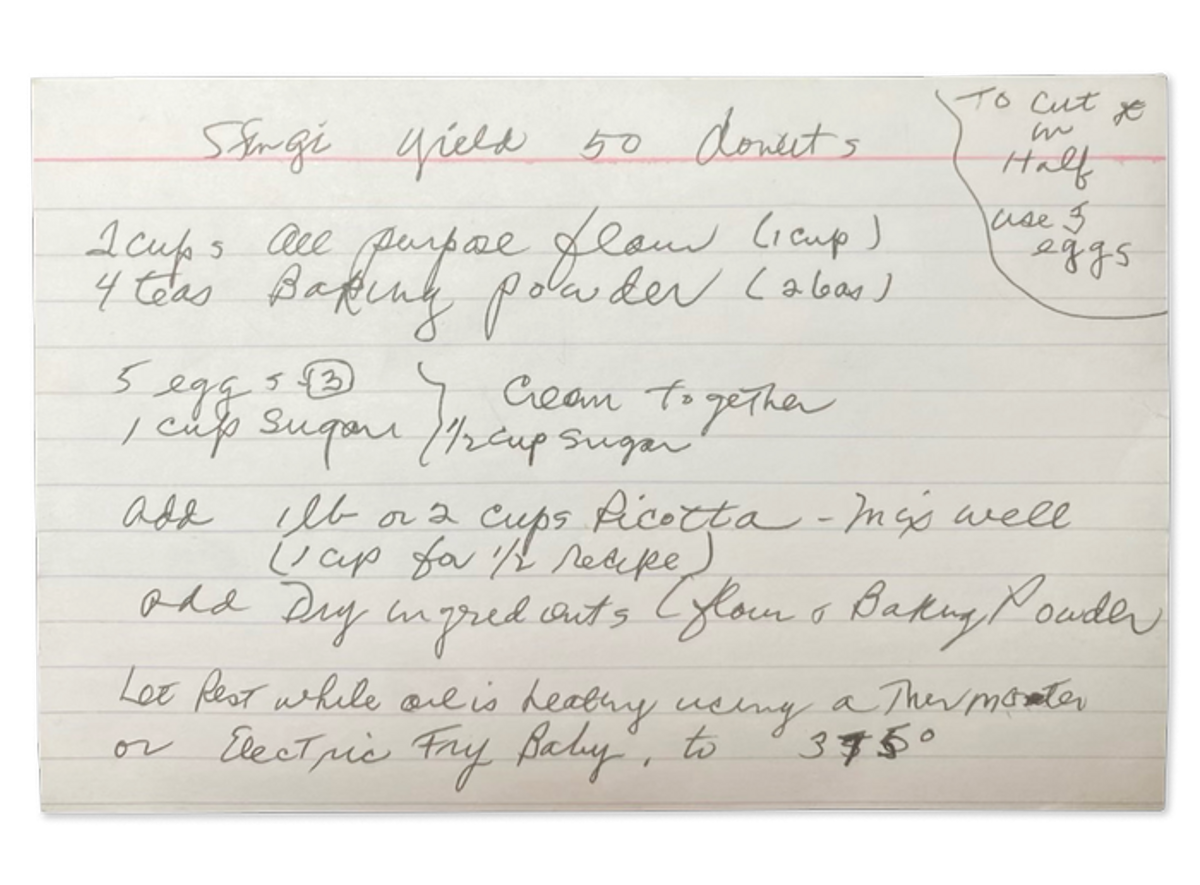 Sfingi yield 50 donuts
To cut
in
Half
use 3
eggs
2 cups all purpose flour (1 cup)
4 teas Baking powder (2 teas)
5 eggs (3)
1 cup Sugar
Cream Together
1/2 cup sugar
add 1 lb or 2 cups Ricotta - Mix well
(1 cup for 1/2 recipe)
add Dry ingredients (flour & Baking Powder
Let Rest while oil is heating using a
or Electric Fry Baby, to 375°